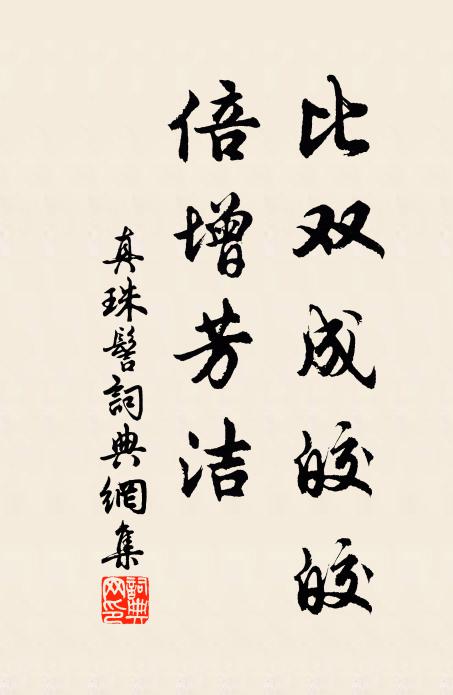 比双成皎皎
倍增芳洁
真珠髻詞典網集
詞典
网印